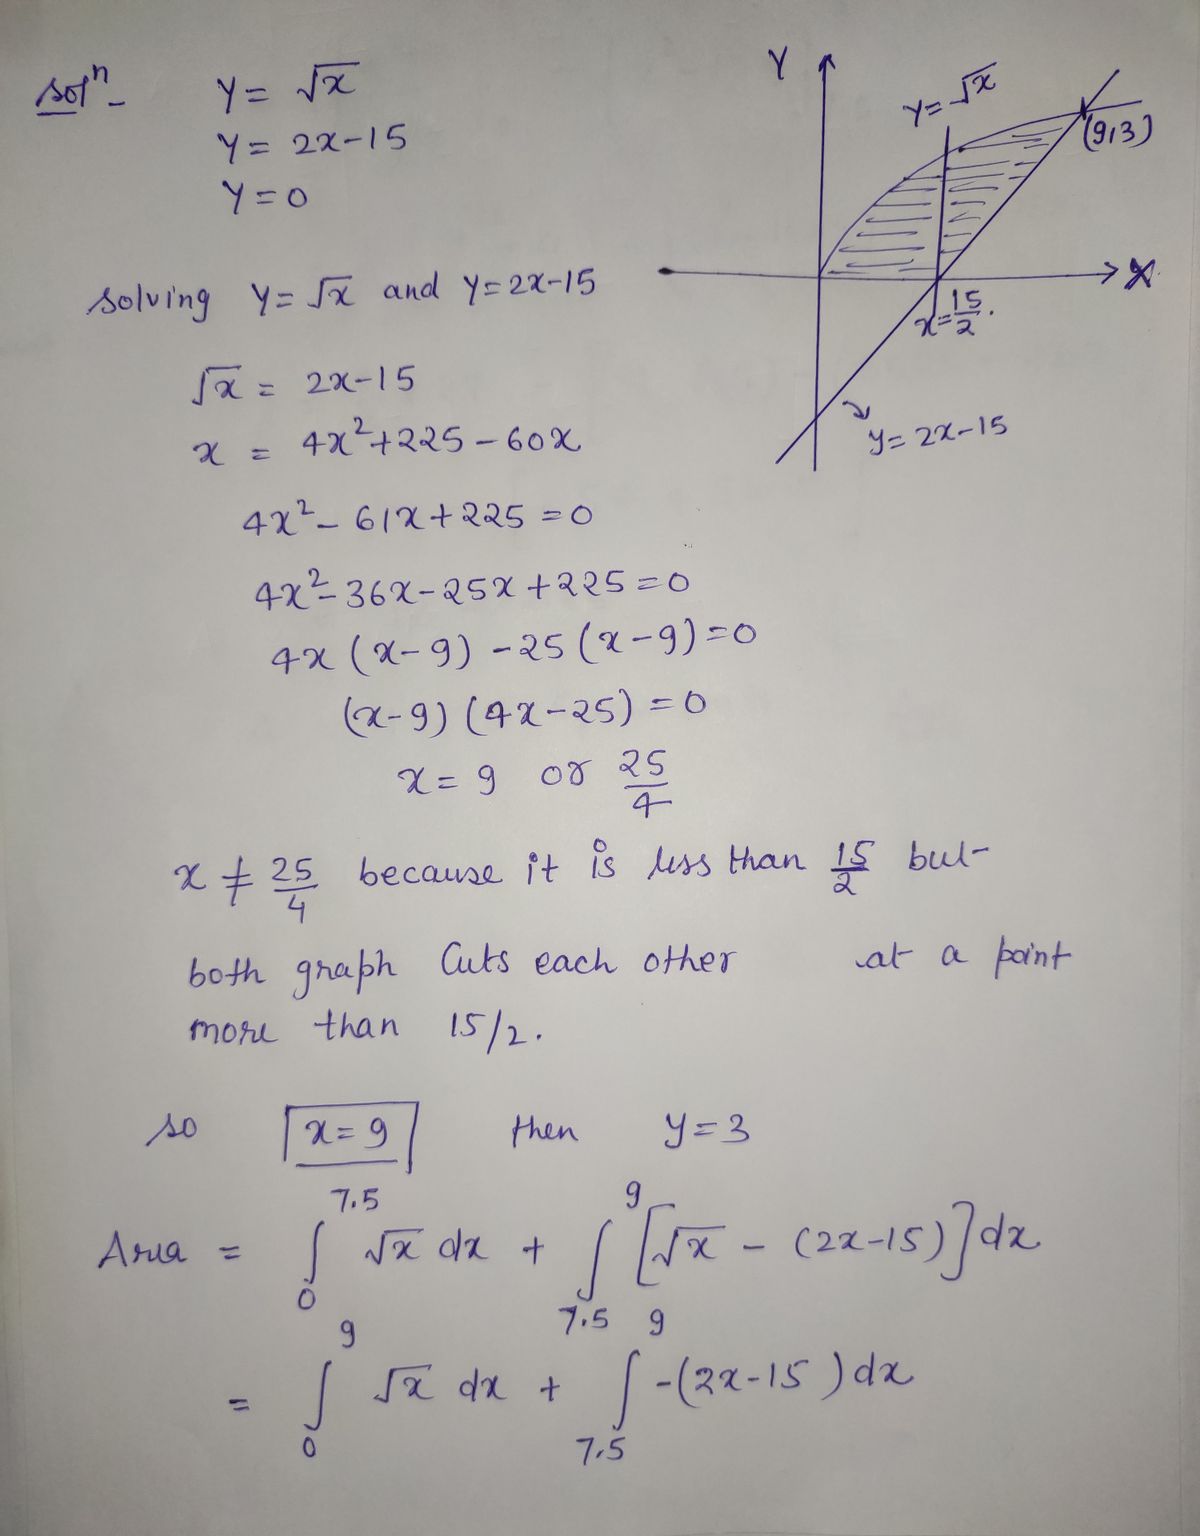 solⁿ-
Y = √x
Y = 2x-15
Y = 0
Y
Y = √x
(9,3)
X
x = 15/2.
y = 2x-15
solving Y = √x and Y = 2x-15
√x = 2x-15
x = 4x²+225-60x
4x²- 61x+225 = 0
4x²- 36x-25x+225 = 0
4x (x-9) -25 (x-9) = 0
(x-9) (4x-25) = 0
x = 9 or 25/4
x ≠ 25/4 because it is less than 15/2 but
both graph Cuts each other at a point
more than 15/2.
so x = 9 then y = 3
Area = ∫₀^7.5 √x dx + ∫_7.5^9 [√x - (2x-15)] dx
= ∫₀^9 √x dx + ∫_7.5^9 -(2x-15) dx